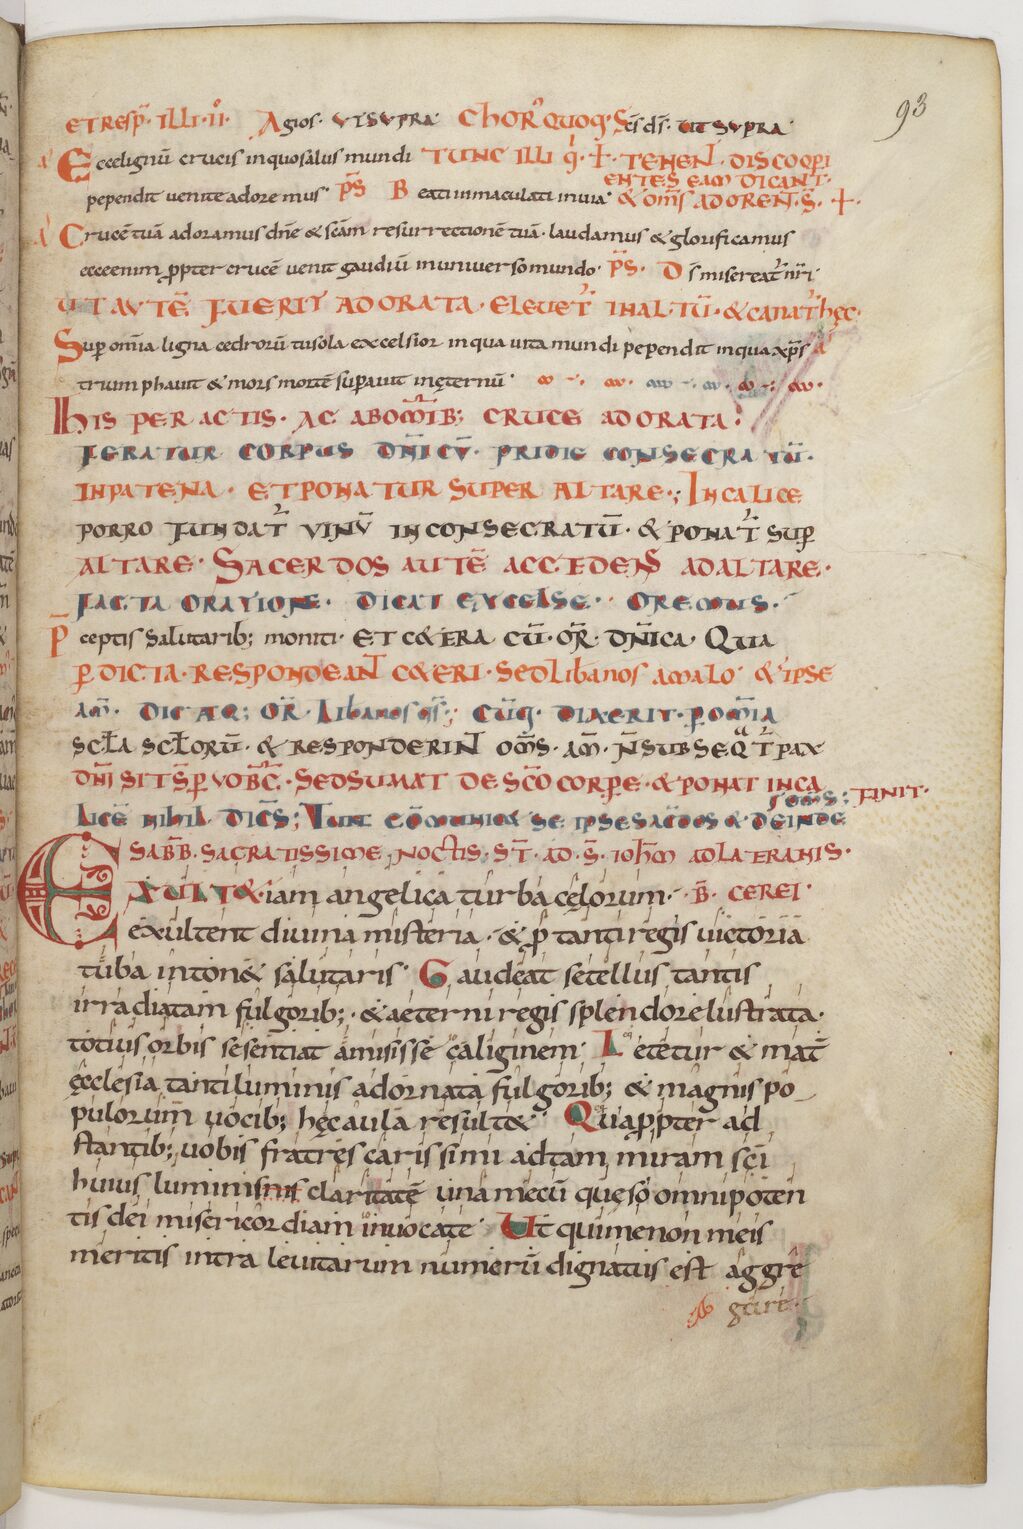 93
ET RESP̄. ILLI. II. Agios. VT SVPRA. CHOR' QUOQ. S̄c̄s d̄s̄. UT SUPRA
A Ecce lignū crucis in quo salus mundi TUNC ILLI q̇ . +. TENEN̄. DISCOOPI
ENTES EAM DICANT.
pependit venite adoremus. P̄S Beati inmaculati in via. & OM̄S ADOREN̄. S̄. +.
A Crucē tuā adoramus dn̄e & sc̄am resurrectionē tuā. laudamus & glorificamus
ecce enim ꝓpter crucē venit gaudiū in universo mundo. P̄S. D̄s misereat' n̄ri
UT AUTĒ FUERIT ADORATA. ELEVET' IN ALTŪ. & CANAT' hęc.
Suꝑ om̄ia ligna cedrorū tu sola excelsior in qua vita mundi pependit in qua xp̄s
triumphavit & mors mortē suꝑavit in ęternū.
HIS PERACTIS. AC AB OM̄IB; CRUCE ADORATA.
FERATUR CORPUS DN̄ICŪ. PRIDIE CONSECRATŪ.
IN PATENA. ET PONATUR SUPER ALTARE.; IN CALICE
PORRO FUNDAT' VINŪ INCONSECRATŪ. & PONAT' SUꝑ
ALTARE. SACERDOS AUTĒ ACCEDENS AD ALTARE.
FACTA ORATIONE. DICAT EXCELSE. OREMUS.
P̄ceptis salutarib; moniti. ET C&ERA CŪ. OR̄. DN̄ICA. QUA
ꝑDICTA. RESPONDEAN̄ C&ERI. Sed libanos a malo. & IPSE
AM̄. DICATQ; OR̄. Libanos q̄s; CŪQ. DIXERIT. ꝑ OM̄IA
SCL̄A SCL̄ORŪ. & RESPONDERIN̄ OM̄S. AM̄. N̄ SUBSEQ̄T' PAX
DN̄I SIT S̄ꝑ VOBC̄. SED SUMAT DE SC̄O CORꝑE. & PONAT IN CA
LICĒ NIHIL DICS̄; TUNC CŌMUNIC& SE IPSE SAC̄DOS & DEINDE
OM̄S; FINIT.
SABB̄. SACRATISSIME NOCTIS. ST̄. AD. S̄. IOHM̄ AD LATERANIS.
EXULT& iam angelica turba cęlorum. B̄. CEREI.
exultent divina misteria. & ꝓ tanti regis victoria
tuba inton& salutaris. Gaudeat se tellus tantis
irradiatam fulgorib;. & aeterni regis splendore lustrata.
totius orbis se sentiat amisisse caliginem. Letetur & mat̄
ęcclesia tanti luminis adornata fulgorib; & magnis po
pulorum vocib; hęc aula result&. Quaꝓpter ad
stantib; vobis fratres carissimi ad tam miram sc̄i
huius luminis claritatē una mecū queso omnipoten
tis dei misericordiam invocate. Ut qui me non meis
meritis intra levitarum numerū dignatus est aggre
gare.